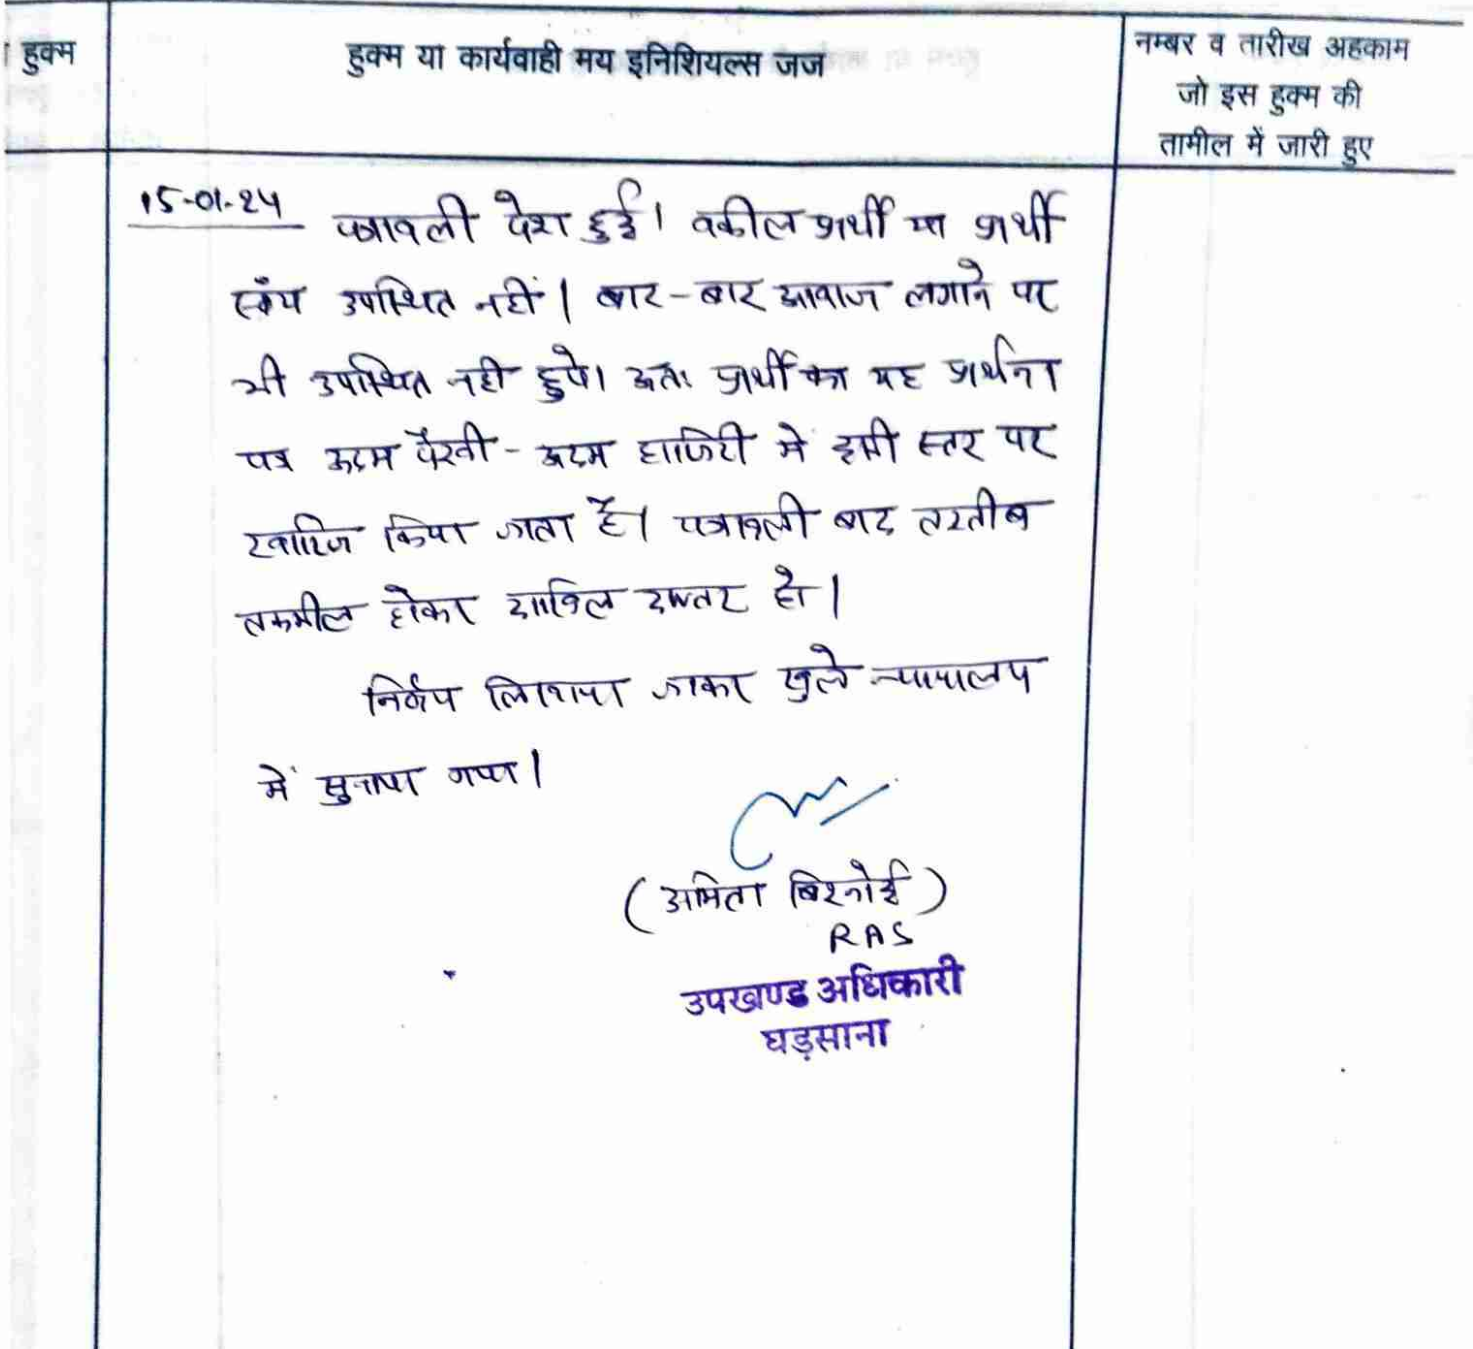 हुक्म
हुक्म या कार्यवाही मय इनिशियल्स जज
नम्बर व तारीख अहकाम
जो इस हुक्म की
तामील में जारी हुए
15-01-24
पत्रावली पेश हुई। वकील प्रार्थी या प्रार्थी
स्वंय उपस्थित नहीं। बार-बार आवाज लगाने पर
भी उपस्थित नही हुये। अतः प्रार्थी का यह प्रार्थना
पत्र अदम पैरवी - अदम हाजिरी में इसी स्तर पर
खारिज किया जाता है। पत्रावली बाद तरतीब
तकमील होकर दाखिल दफ्तर हो।
निर्णय लिखाया जाकर खुले न्यायालय
में सुनाया गया।
(अमिता बिश्नोई)
RAS
उपखण्ड अधिकारी
घड़साना